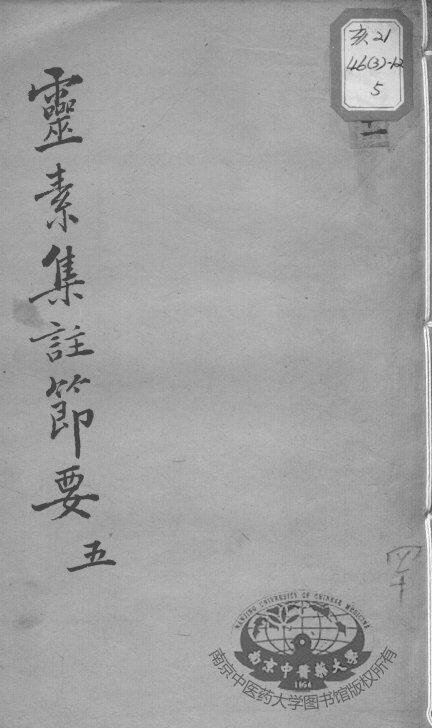 亥21
46(3)-12
5
十一
靈素集註節要 五
四十
NANJING UNIVERSITY OF CHINESE MEDICINE
南京中醫藥大學
1954
南京中医药大学图书馆版权所有